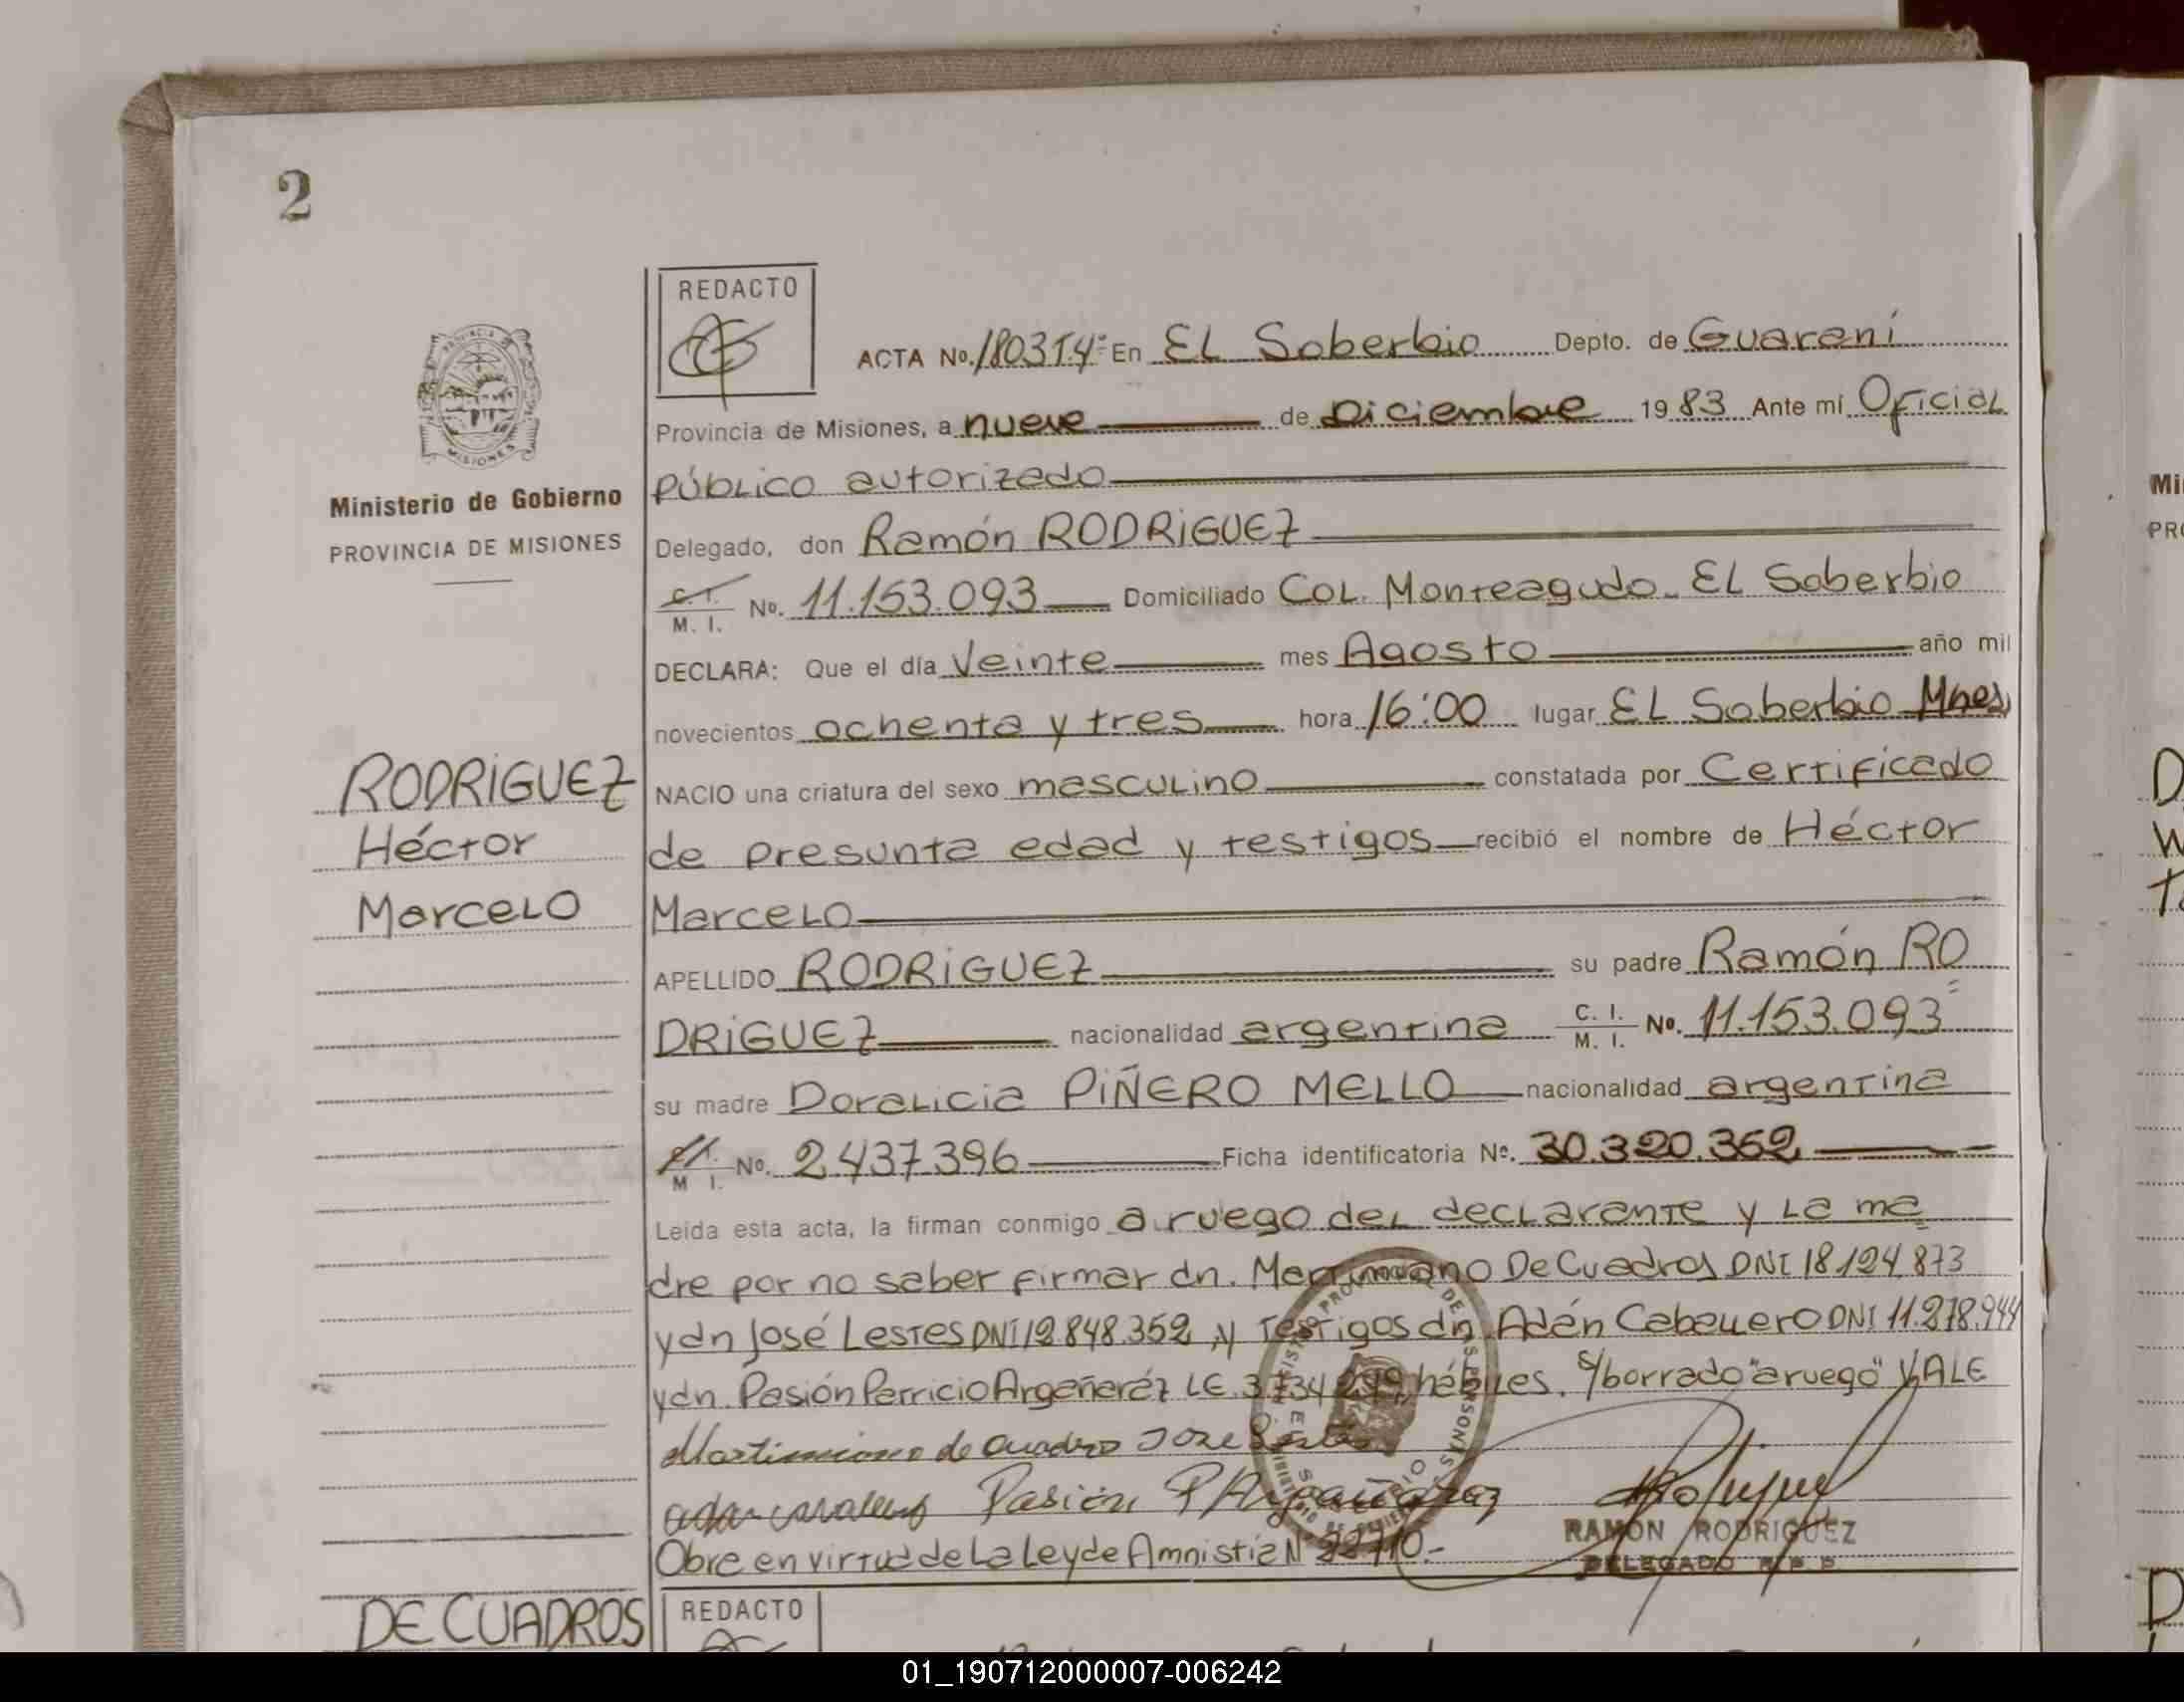 2
REDACTO
ACTA No. 1803T.4º En EL Soberbio Depto. de Guaraní
Provincia de Misiones, a nueve de Diciembre 1983 Ante mí Oficial
Público autorizado
Ministerio de Gobierno
PROVINCIA DE MISIONES
Delegado, don Ramón RODRIGUEZ
C. I. M. I. No. 11.153.093 Domiciliado Col. Monteagudo - EL Soberbio
DECLARA: Que el día Veinte mes Agosto año mil
novecientos ochenta y tres hora 16:00 lugar EL Soberbio Mnes
RODRIGUEZ
Héctor
Marcelo
NACIO una criatura del sexo masculino constatada por Certificado
de presunta edad y testigos recibió el nombre de Héctor
Marcelo
APELLIDO RODRIGUEZ su padre Ramón RO
DRIGUEZ nacionalidad argentina C. I. M. I. No. 11.153.093
su madre Doralicia PIÑERO MELLO nacionalidad argentina
M I. No. 2.437.396 Ficha identificatoria Nº. 30.320.362
Leída esta acta, la firman conmigo a ruego del declarante y la ma
dre por no saber firmar dn. De Cuadros DNI 18.124.873
y dn José Lestes DNI 12.848.352 y testigos dn Adán Caballero DNI 11.278.944
y dn. Pasión Patricio Argañeráz LE. hábiles. S/borrado "a ruego" VALE
de cuadro Jose
Pasión P
Obre en virtud de la Ley de Amnistía N 22710.-
RAMON RODRIGUEZ
DELEGADO R. P. P.
DE CUADROS
REDACTO
01_190712000007-006242